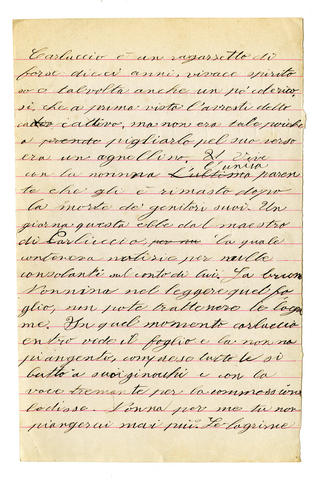 Carluccio è un ragazzetto di
forse dieci anni, vivace spirito
so e talvolta anche un po' collerico,
sì, che a prima vista l'avresti detto
cattivo, ma non era tale poichè
a prenderlo pigliarlo pel suo verso
era un agnellino. Vive
l'unica
con la nonna L'ultima paren
te che gli è rimasto dopo
la morte de' genitori suoi. Un
giorno questa ebbe dal maestro
di Carluccio la quale
conteneva notizie per nulla
consolanti sul conto di lui. La buon
Nonnina nel leggere quel fo
glio, non potè trattenere le lagri
me. In quel momento carluccio
entrò vide il foglio e la nonna
piangente, comprese tutto le si
buttò a suoi ginocchi e con la
voce tremante per la commossione
le disse. Nonna per me tu non
piangerai mai più. Le lagrime